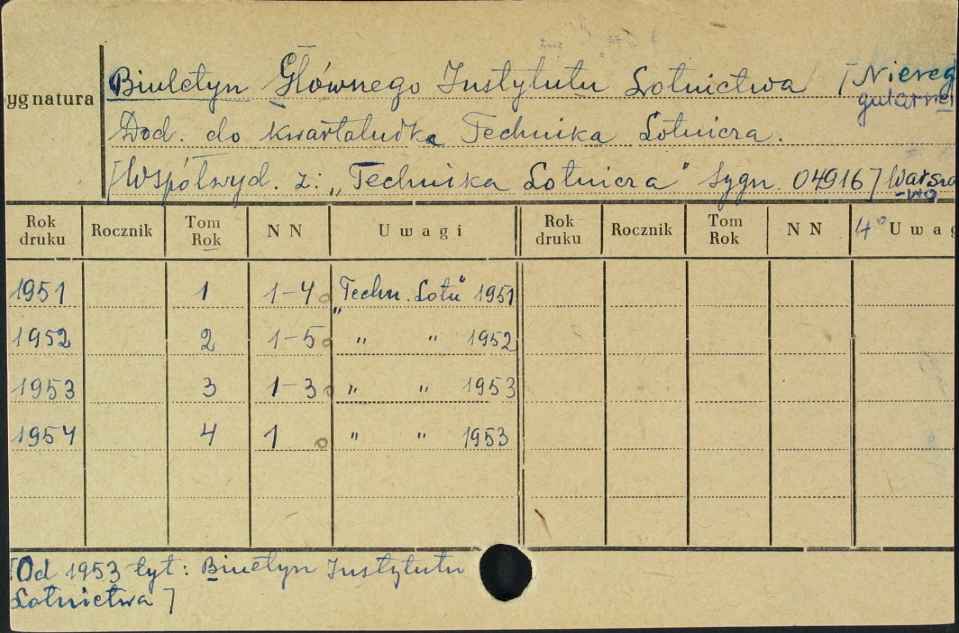 Biuletyn Głównego Instytutu Lotnictwa [Niereg
gularne
ygnatura
Dod. do kwartalnika Technika Lotnicza.
[Współwyd. z: „Technika Lotnicza" Sygn. 04916] Warsza
-wa
Rok druku Rocznik Tom Rok NN Uwagi Rok druku Rocznik Tom Rok NN 4° Uwag
1951 1 1-4 „Techn. Lotn" 1951
1952 2 1-5 " " 1952
1953 3 1-3 " " 1953
1954 4 1 " " 1953
[Od 1953 tyt: Biuletyn Instytutu
Lotnictwa]